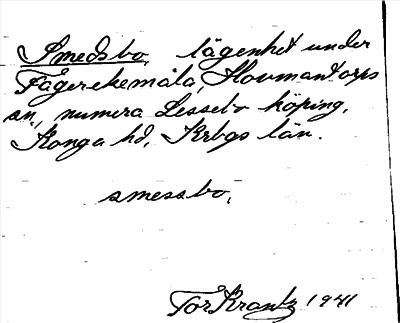 Smedsbo, lägenhet under
Fagerekemåla, Hovmantorps
sn, numera Lessebo köping,
Konga hd, Krbgs län.
smessbo,
Tor Krantz 1941